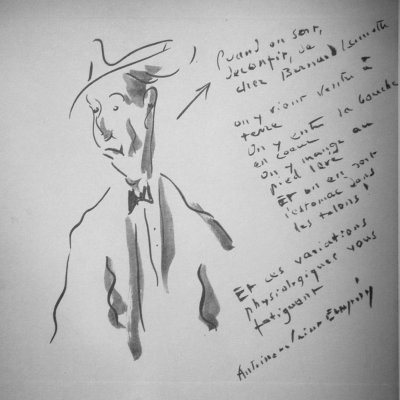 Quand on sort,
déconfit, de
chez Bernard
on y vient ventre à
terre
On y entre la bouche
en coeur
On y mange au
pied levé
Et on en sort
l'estomac dans
les talons !
Et ces variations
physiologiques vous
fatiguent
Antoine de Saint Exupéry